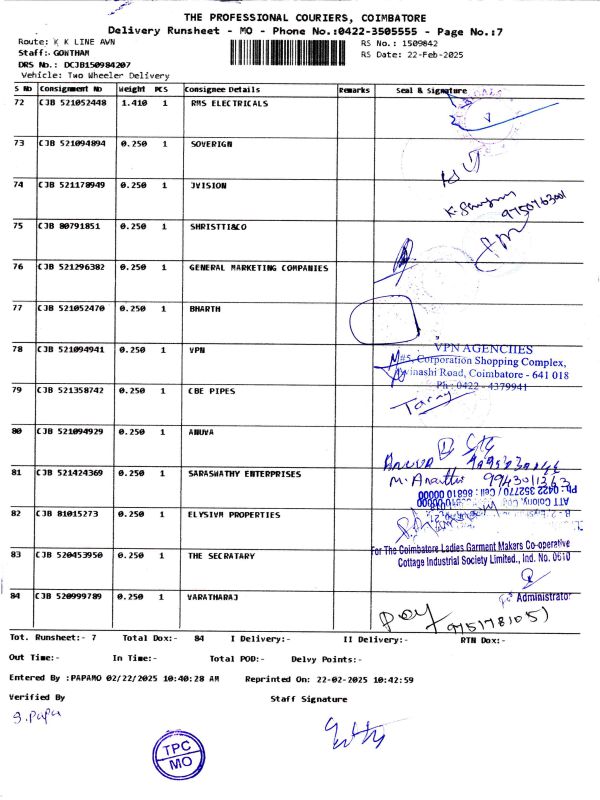 THE PROFESSIONAL COURIERS, COIMBATORE
Delivery Runsheet - MO - Phone No.:0422-3505555 - Page No.:7
Route: K K LINE AVN
RS No.: 1509842
Staff:- GOWTHAM
RS Date: 22-Feb-2025
DRS No.: DCJB150984207
Vehicle: Two Wheeler Delivery
S No Consignment No Weight PCS Consignee Details Remarks Seal & Signature
72 CJB 521052448 1.410 1 RMS ELECTRICALS
73 CJB 521094894 0.250 1 SOVERIGN
74 CJB 521178949 0.250 1 JVISION
9750763001
75 CJB 80791851 0.250 1 SHRISTTI&CO
76 CJB 521296382 0.250 1 GENERAL MARKETING COMPANIES
77 CJB 521052470 0.250 1 BHARTH
78 CJB 521094941 0.250 1 VPN
VPN AGENCIIES
#5, Corporation Shopping Complex,
Avinashi Road, Coimbatore - 641 018
Ph : 0422 - 4379941
79 CJB 521358742 0.250 1 CBE PIPES
80 CJB 521094929 0.250 1 ANUVA
Anuva
81 CJB 521424369 0.250 1 SARASWATHY ENTERPRISES
M. Ananthi 9943011263
Ph: 0422 352770 / Cell : 86810 00000
ATT Colony,
82 CJB 81015273 0.250 1 ELYSIVM PROPERTIES
83 CJB 520453950 0.250 1 THE SECRATARY
For The Coimbatore Ladies Garment Makers Co-operative
Cottage Industrial Society Limited., Ind. No. 0610
Administrator
84 CJB 520999789 0.250 1 VARATHARAJ
9751781051
Tot. Runsheet:- 7 Total Dox:- 84 I Delivery:- II Delivery:- RTN Dox:-
Out Time:- In Time:- Total POD:- Delvy Points:-
Entered By :PAPAMO 02/22/2025 10:40:28 AM Reprinted On: 22-02-2025 10:42:59
Verified By Staff Signature
g. Papa
TPC
MO